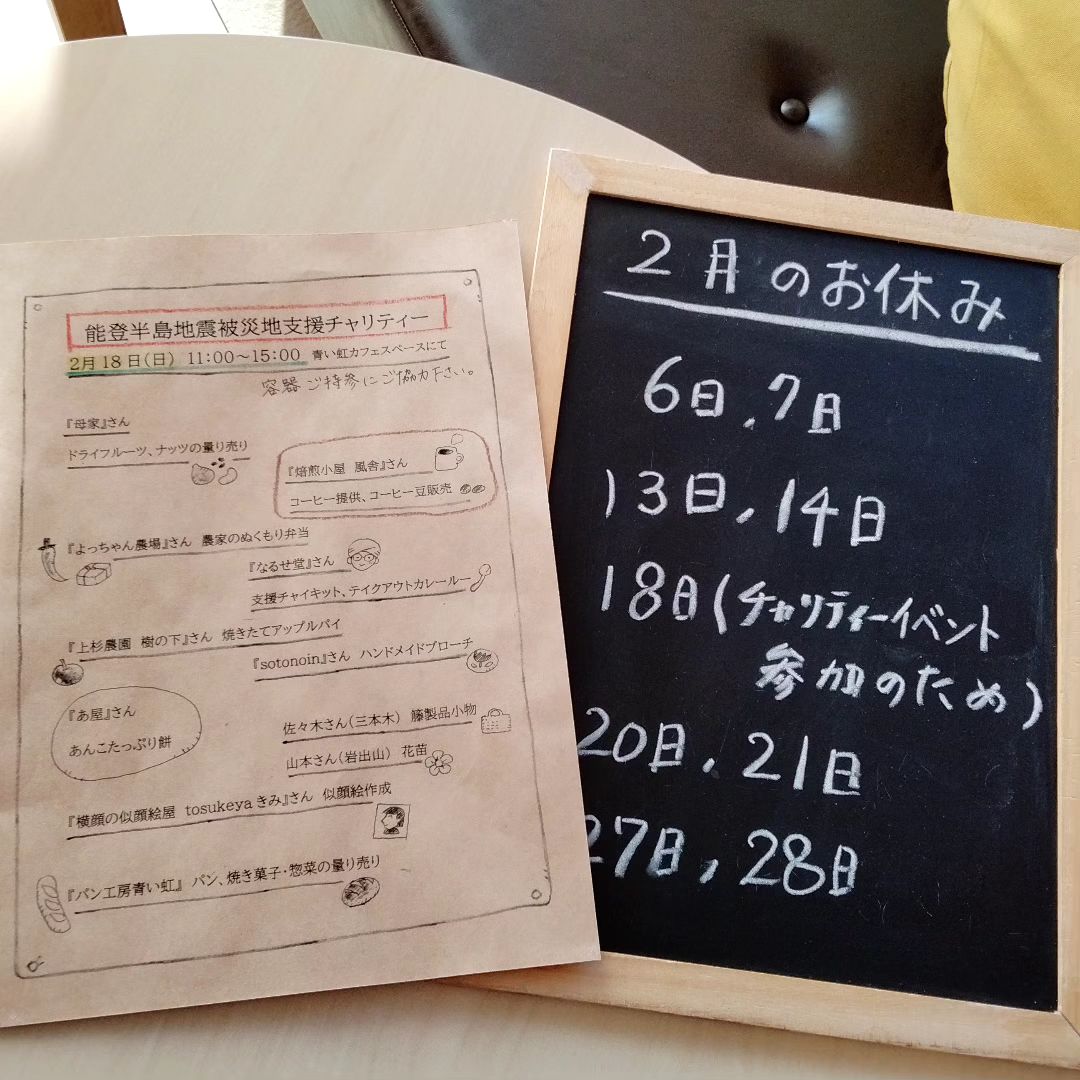 能登半島地震被災地支援チャリティー
2月18日(日) 11:00～15:00 青い虹カフェスペースにて
容器ご持参にご協力下さい。
『母家』さん
ドライフルーツ、ナッツの量り売り
『焙煎小屋 風舎』さん
コーヒー提供、コーヒー豆販売
『よっちゃん農場』さん 農家のぬくもり弁当
『なるせ堂』さん
支援チャイキット、テイクアウトカレールー
『上杉農園 樹の下』さん 焼きたてアップルパイ
『sotonoin』さん ハンドメイドブローチ
『あ屋』さん
あんこたっぷり餅
佐々木さん(三本木) 籐製品小物
山本さん(岩出山) 花苗
『横顔の似顔絵屋 tosukeyaきみ』さん 似顔絵作成
『パン工房青い虹』 パン、焼き菓子・惣菜の量り売り
2月のお休み
6日、7日
13日、14日
18日(チャリティーイベント
参加のため)
20日、21日
27日、28日